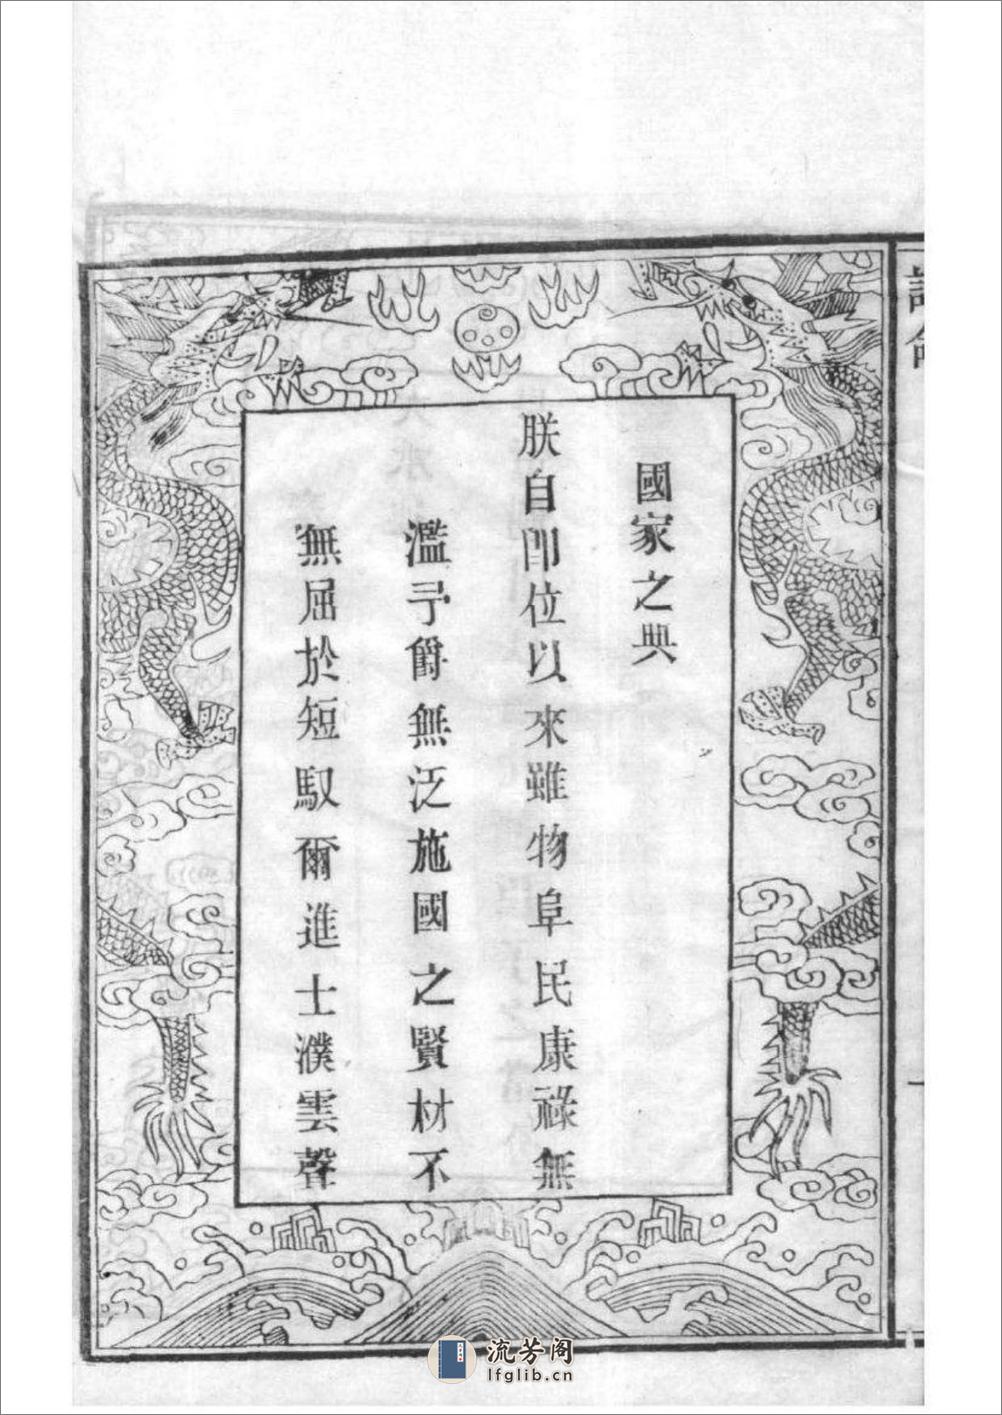 國家之典
朕自卽位以來雖物阜民康祿無
濫予爵無泛施國之賢材不
無屈於短馭爾進士濮雲聲
流芳阁
lfglib.cn